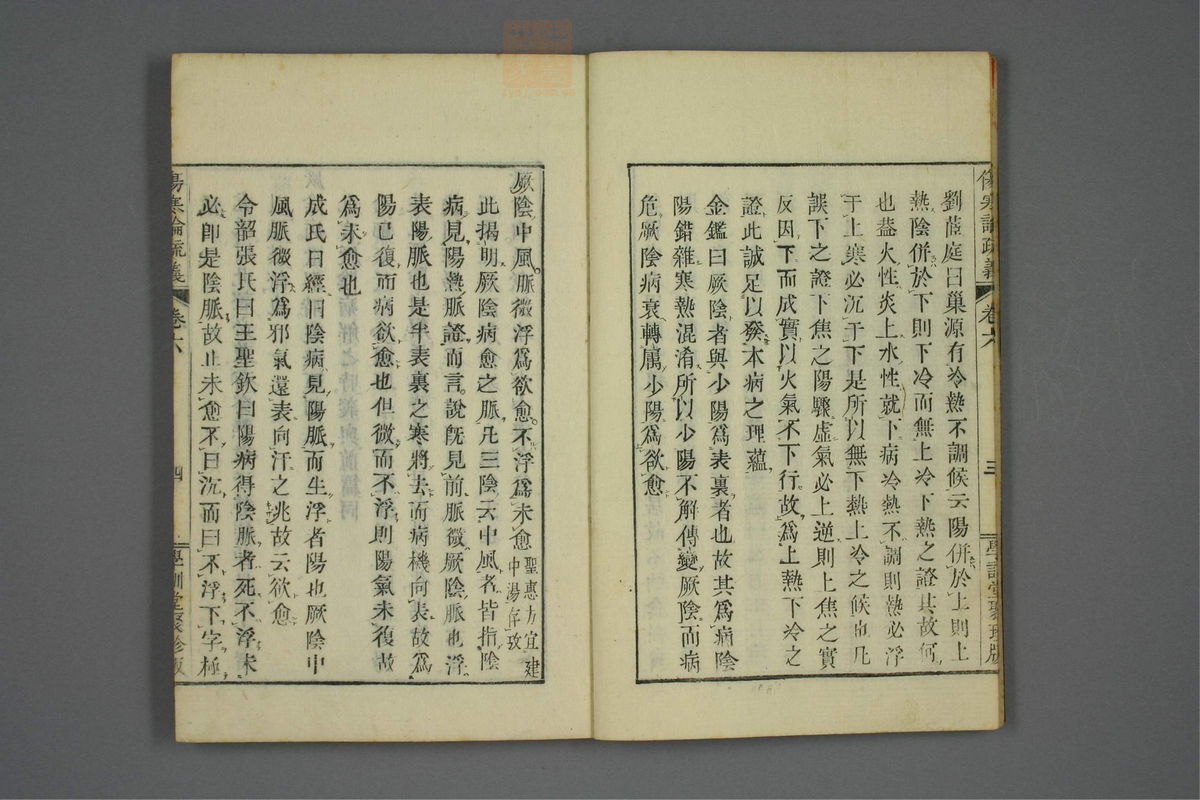 傷寒論疏義 卷六 三 學訓堂聚珍版
劉茝庭曰巢源有冷熱不調候云陽併於上則上
熱陰併於下則下冷而無上冷下熱之證其故何
也葢火性炎上水性就下病冷熱不調則熱必浮
于上寒必沉于下是所以無下熱上冷之候也凡
誤下之證下焦之陽驟虛氣必上逆則上焦之實
反因下而成實以火氣不下行故爲上熱下冷之
證此誠足以發本病之理蘊
金鑑曰厥陰者與少陽爲表裏者也故其爲病陰
陽錯雜寒熱混淆所以少陽不解傳變厥陰而病
危厥陰病衰轉属少陽爲欲愈
厥陰中風脈微浮爲欲愈不浮爲未愈聖惠方宜建
中湯存攷
此揭明厥陰病愈之脈凡三陰云中風者皆指陰
病見陽熱脈證而言說旣見前脈微厥陰脈也浮
表陽脈也是半表裏之寒將去而病機向表故爲
陽已復而病欲愈也但微而不浮則陽氣未復故
爲未愈也
成氏曰經曰陰病見陽脈而生浮者陽也厥陰中
風脈微浮爲邪氣還表向汗之兆故云欲愈
令韶張氏曰王聖欽曰陽病得陰脈者死不浮未
必卽是陰脈故止未愈不曰沉而曰不浮下字極
傷寒論疏義 卷六 四 學訓堂聚珍版